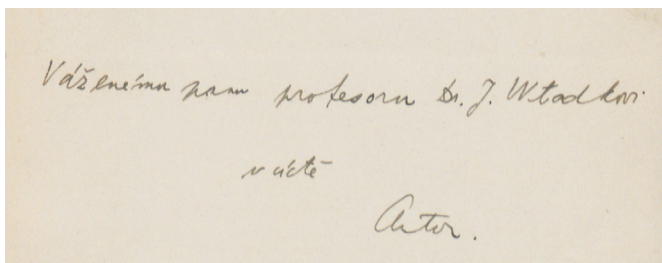 Váženému panu profesoru Dr. J. Wtodkovi
v úctě
Autor.